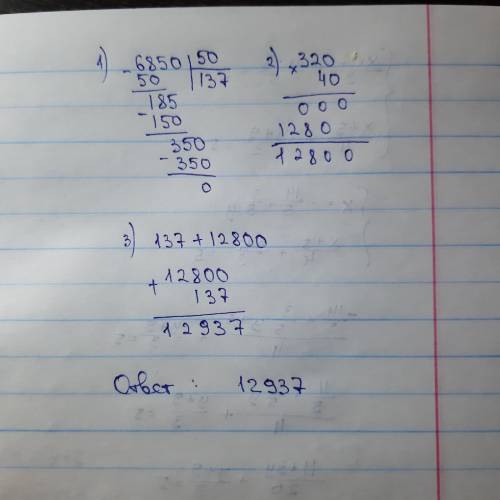 1) 6850 | 50
- 50 | 137
185
- 150
350
- 350
0
2) × 320
40
000
1280
12800
3) 137 + 12800
+ 12800
137
12937
Ответ : 12937